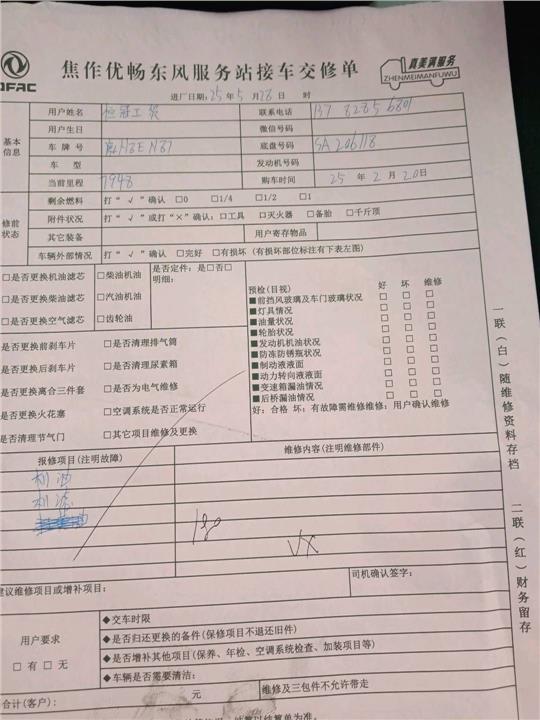 DFAC
焦作优畅东风服务站接车交修单
真美满服务
ZHENMEIMANFUWU
进厂日期：25年5月28日 时
基本信息
用户姓名 恒冠工贸 联系电话 137 8285 6801
用户生日 微信号码
车牌号 底盘号码 SA206118
车型 发动机号码
当前里程 7948 购车时间 25年2月20日
修前状态
剩余燃料 打“√”确认 □0 □1/4 □1/2 □1
附件状况 打“√”或打“×”确认：□工具 □灭火器 □备胎 □千斤顶
其它装备 用户寄存物品
车辆外部情况 打“√”确认 □完好 □有损坏（有损坏部位标注有下表左图）
□是否更换机油滤芯 □柴油机油 是否定件：是□否□
明细：
□是否更换柴油滤芯 □汽油机油
□是否更换空气滤芯 □齿轮油
是否更换前刹车片 □是否清理排气筒
是否更换后刹车片 □是否清理尿素箱
是否更换离合三件套 □是否为电气维修
是否更换火花塞 □空调系统是否正常运行
是否清理节气门 □其它项目维修及更换
预检(目视) 好 坏 维修
■前挡风玻璃及车门玻璃状况 □ □ □
■灯具情况 □ □ □
■油量状况 □ □ □
■轮胎状况 □ □ □
■发动机机油状况 □ □ □
■防冻防锈瓶状况 □ □ □
■制动液液面 □ □ □
■动力转向液液面 □ □ □
■变速箱漏油情况 □ □ □
■后桥漏油情况 □ □ □
好：合格 坏：有故障需维修维修：用户确认维修
报修项目(注明故障) 维修内容(注明维修部件)
机油
机滤
180
建议维修项目或增补项目： 司机确认签字：
用户要求
□有□无
◆交车时限
◆是否归还更换的备件(保修项目不退还旧件)
◆是否增补其他项目(保养、年检、空调系统检查、加装项目等)
◆车辆是否需要清洁：
合计(客户)： 元 维修及三包件不允许带走
一联（白）随维修资料存档
二联（红）财务留存